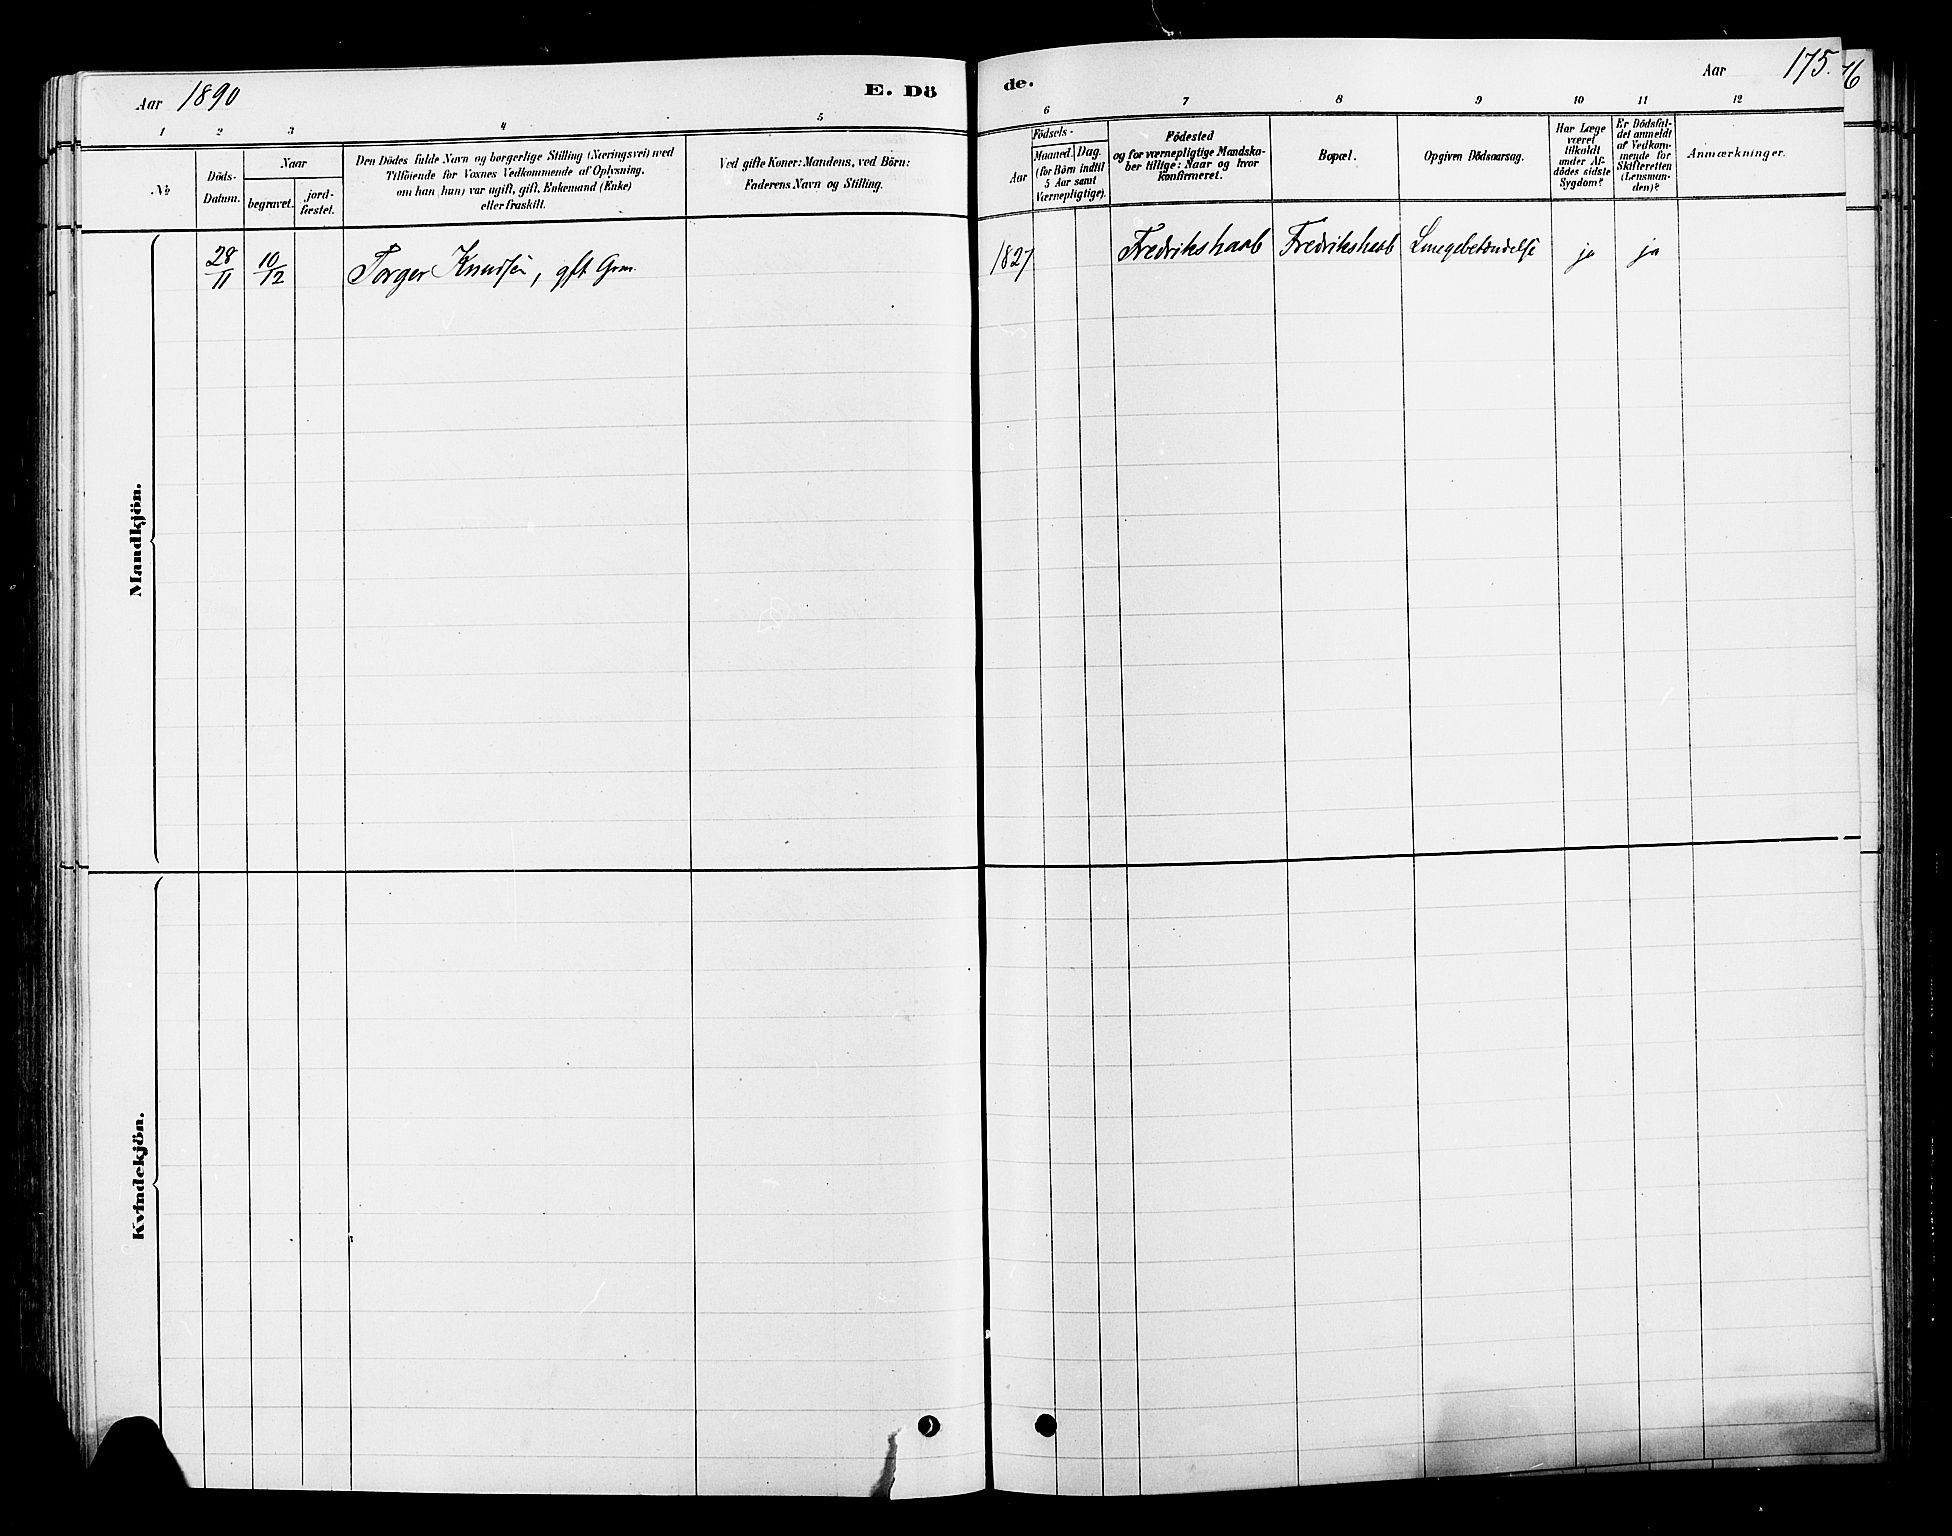 Aar 1890
E. Dö
de.
Aar 175.
76
1 2 3 4 5
6 7 8 9 10 11 12
No
Döds-
Datum.
Naar
begravet.
jord-
fæstet.
Den Dödes fulde Navn og borgerlige Stilling (Næringsvei) med
Tilföiende for Voxnes Vedkommende af Oplysning,
om han (hun) var ugift, gift, Enkemand (Enke)
eller fraskilt.
Ved gifte Koner: Mandens, ved Börn:
Faderens Navn og Stilling.
Födsels-
Aar
Maaned. Dag.
(for Börn indtil
5 Aar samt
Værnepligtige).
Födested
og for værnepligtige Mandska-
ber tillige: Naar og hvor
konfirmeret.
Bopæl.
Opgiven Dödsaarsag.
Har Læge
været
tilkaldt
under Af-
dödes sidste
Sygdom?
Er Dödsfal-
det anmeldt
af Vedkom-
mende for
Skifteretten
(Lensman-
den)?
Anmærkninger.
28/11 10/12 Torger Knudsen, gft Grm. 1827 Fredrikshaab Fredrikshaab Lungebetændelse ja ja
Mandkjön.
Kvindekjön.